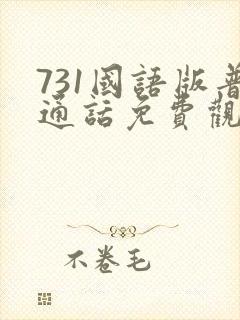 731國語版普
通話免費觀
不卷毛